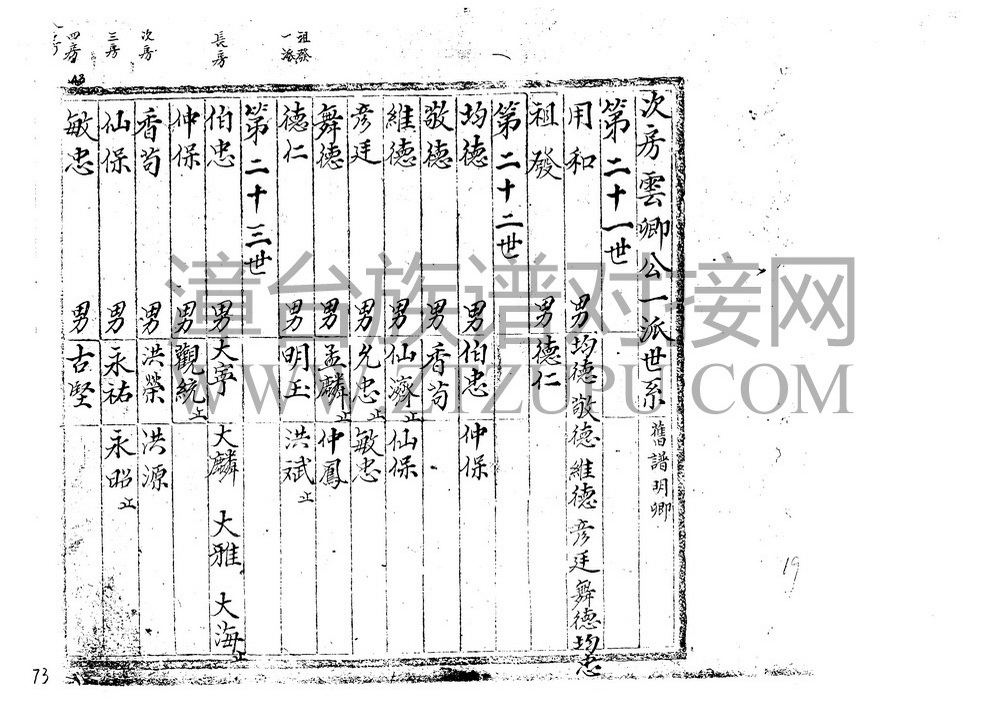 次房雲卿公一派世系 舊譜明卿
第二十一世
用和 男 均德 敬德 維德 彦廷 舞德 均忠
祖發 男 德仁
第二十二世
均德 男 伯忠 仲保
敬德 男 香苟
維德 男 仙濟止 仙保
彦廷 男 允忠止 敏忠
舞德 男 孟麟止 仲鳳
德仁 男 明玉 洪斌止
第二十三世
伯忠 男 大寧 大麟 大雅 大海止
仲保 男 觀統止
香苟 男 洪榮 洪源
仙保 男 永祐 永昭止
敏忠 男 古堅
祖發一派
長房
次房
三房
四房
43
19
73
漳台族谱对接网
WWW.ZTZUPU.COM